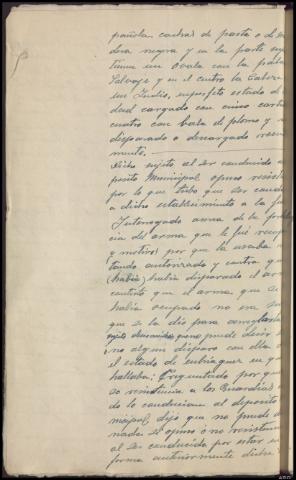 pañola cachas de pasta o de ma
dera negra y en la parte sup
tiene un óvalo con la pala
Salvaje y en el centro la Cabeza
un Indio, en perfecto estado de
dad cargado con cinco cart
cuatro con bala de plomo y
disparado o descargado recien
mente.
Dicho sujeto al ser conducido a
pósito Municipal opuso resist
por lo que tubo que ser condu
a dicho establecimiento a la fu
Interrogado acerca de la
cia del arma que le fue recog
y motivo por que la usaba
tando autorizado y contra
(había) había disparado el ar
contestó que el arma que se
había ocupado no era su
que se la dio para
puede decir
no algun disparo con ella
el estado de embriaguez en q
hallaba; Preguntado por que
zo resistencia a los Guardias
de lo condujeran al deposito
nicipal, dijo que no puede
nada si opuso o no resistencia
al ser conducido por estar en
forma anteriormente dicha